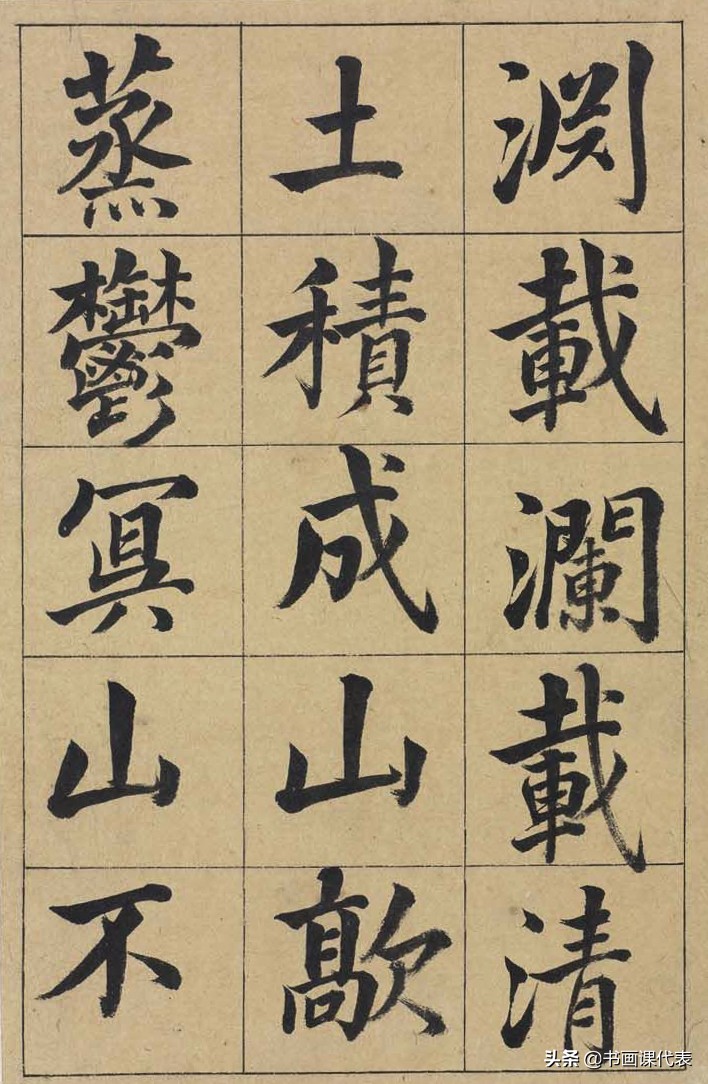 渊載瀾載清
土積成山歊
蒸鬱冥山不
头条 @书画课代表